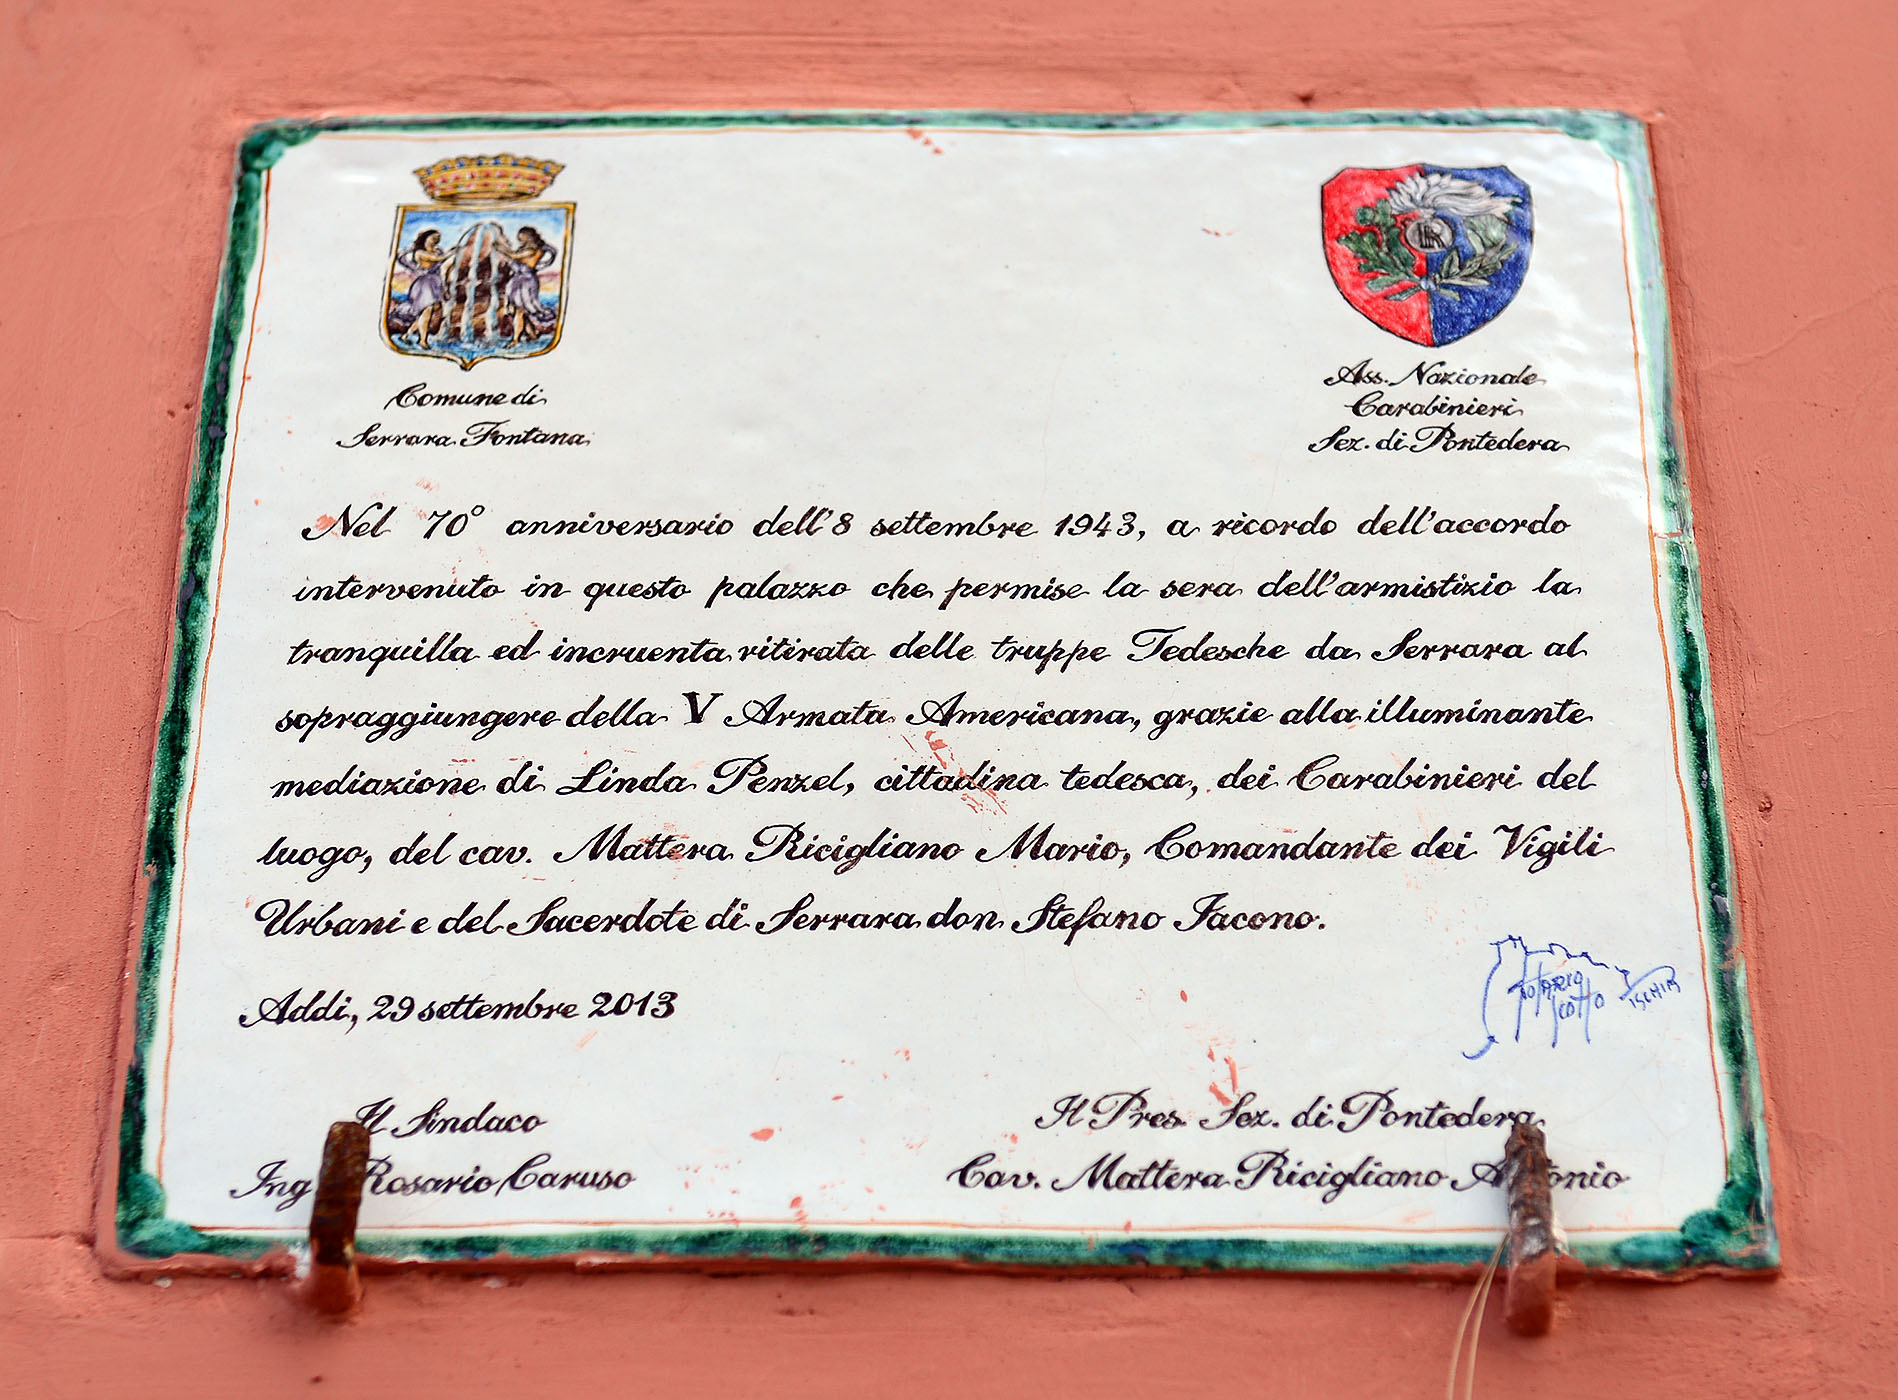 Comune di
Serrara Fontana
Ass. Nazionale
Carabinieri
Sez. di Pontedera
Nel 70° anniversario dell'8 settembre 1943, a ricordo dell'accordo
intervenuto in questo palazzo che permise la sera dell'armistizio la
tranquilla ed incruenta ritirata delle truppe Tedesche da Serrara al
sopraggiungere della V Armata Americana, grazie alla illuminante
mediazione di Linda Penzel, cittadina tedesca, dei Carabinieri del
luogo, del cav. Mattera Ricigliano Mario, Comandante dei Vigili
Urbani e del Sacerdote di Serrara don Stefano Iacono.
Addi, 29 settembre 2013
ISCHIA
Il Sindaco
Ing Rosario Caruso
Il Pres. Sez. di Pontedera
Cav. Mattera Ricigliano Antonio